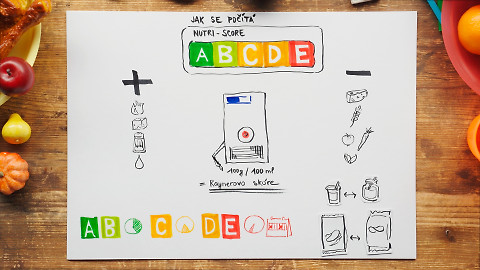 JAK SE POČÍTÁ
NUTRI-SCORE
ABCDE
+ −
100g / 100 ml
= Raynerovo skóre
AB C DE